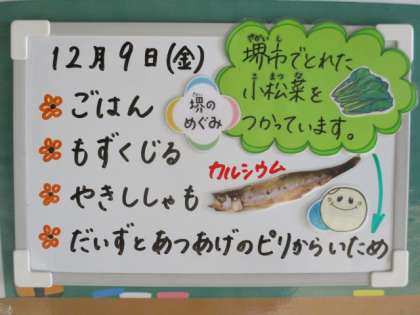 12月9日(金)
ごはん
もずくじる
やきししゃも
だいずとあつあげのピリからいため
カルシウム
堺の
めぐみ
さかいし
堺市でとれた
こまつな
小松菜を
つかっています。